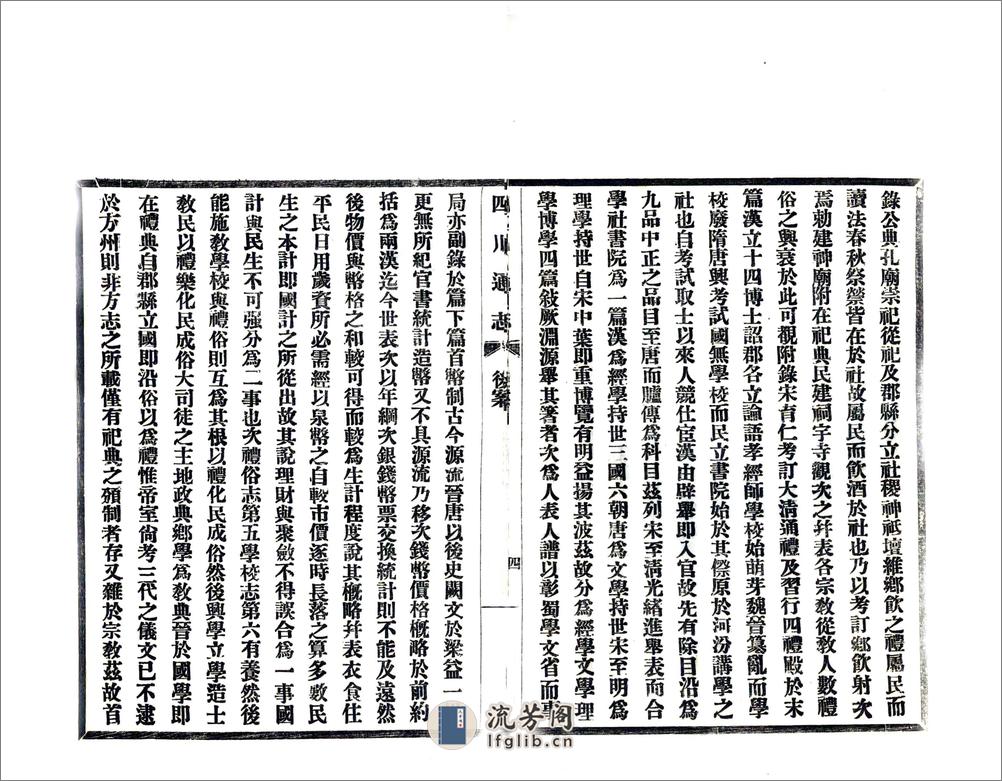 錄公典孔廟崇祀從祀及郡縣分立社稷神祗壇維鄉飲之禮屬民而
讀法春秋祭禜皆在於社故屬民而飲酒於社也乃以考訂鄉飲射次
焉勅建神廟附在祀典民建祠宇寺觀次之幷表各宗教從教人數禮
俗之興衰於此可覩附錄宋育仁考訂大清通禮及習行四禮殿於末
篇漢立十四博士詔郡各立論語孝經師學校始萌芽魏晉纂亂而學
校廢隋唐興考試國無學校而民立書院始於其際原於河汾講學之
社也自考試取士以來人競仕宦漢由辟舉即入官故先有除目沿爲
九品中正之品目至唐而臚傳爲科目茲列宋至清光緒進舉表而合
學社書院爲一篇漢爲經學持世三國六朝唐爲文學持世宋至明爲
理學持世自宋中葉即重博覽有明益揚其波茲故分爲經學文學理
學博學四篇敍厥淵源舉其著者次爲人表人譜以彰蜀學文省而事
四川通志 後案 四
局亦副錄於篇下篇首幣制古今源流晉唐以後史闕文於梁益一
更無所紀官書統計造幣又不具源流乃移次錢幣價格概略於前約
括爲兩漢迄今世表次以年綱次銀錢幣票交換統計則不能及遠然
後物價與幣格之和較可得而較爲生計程度說其概略幷表衣食住
平民日用歲資所必需經以泉幣之自較市價逐時長落之算多數民
生之本計即國計之所從出故其說理財與聚斂不得誤合爲一事國
計與民生不可強分爲二事也次禮俗志第五學校志第六有養然後
能施教學校與禮俗則互爲其根以禮化民成俗然後興學立學造士
教民以禮樂化民成俗大司徒之主地政典鄉學爲教典晉於國學即
在禮典自郡縣立國即沿俗以爲禮惟帝室尙考三代之儀文已不逮
於方州則非方志之所載僅有祀典之頒制者存又雜於宗教茲故首
流芳阁
lfglib.cn